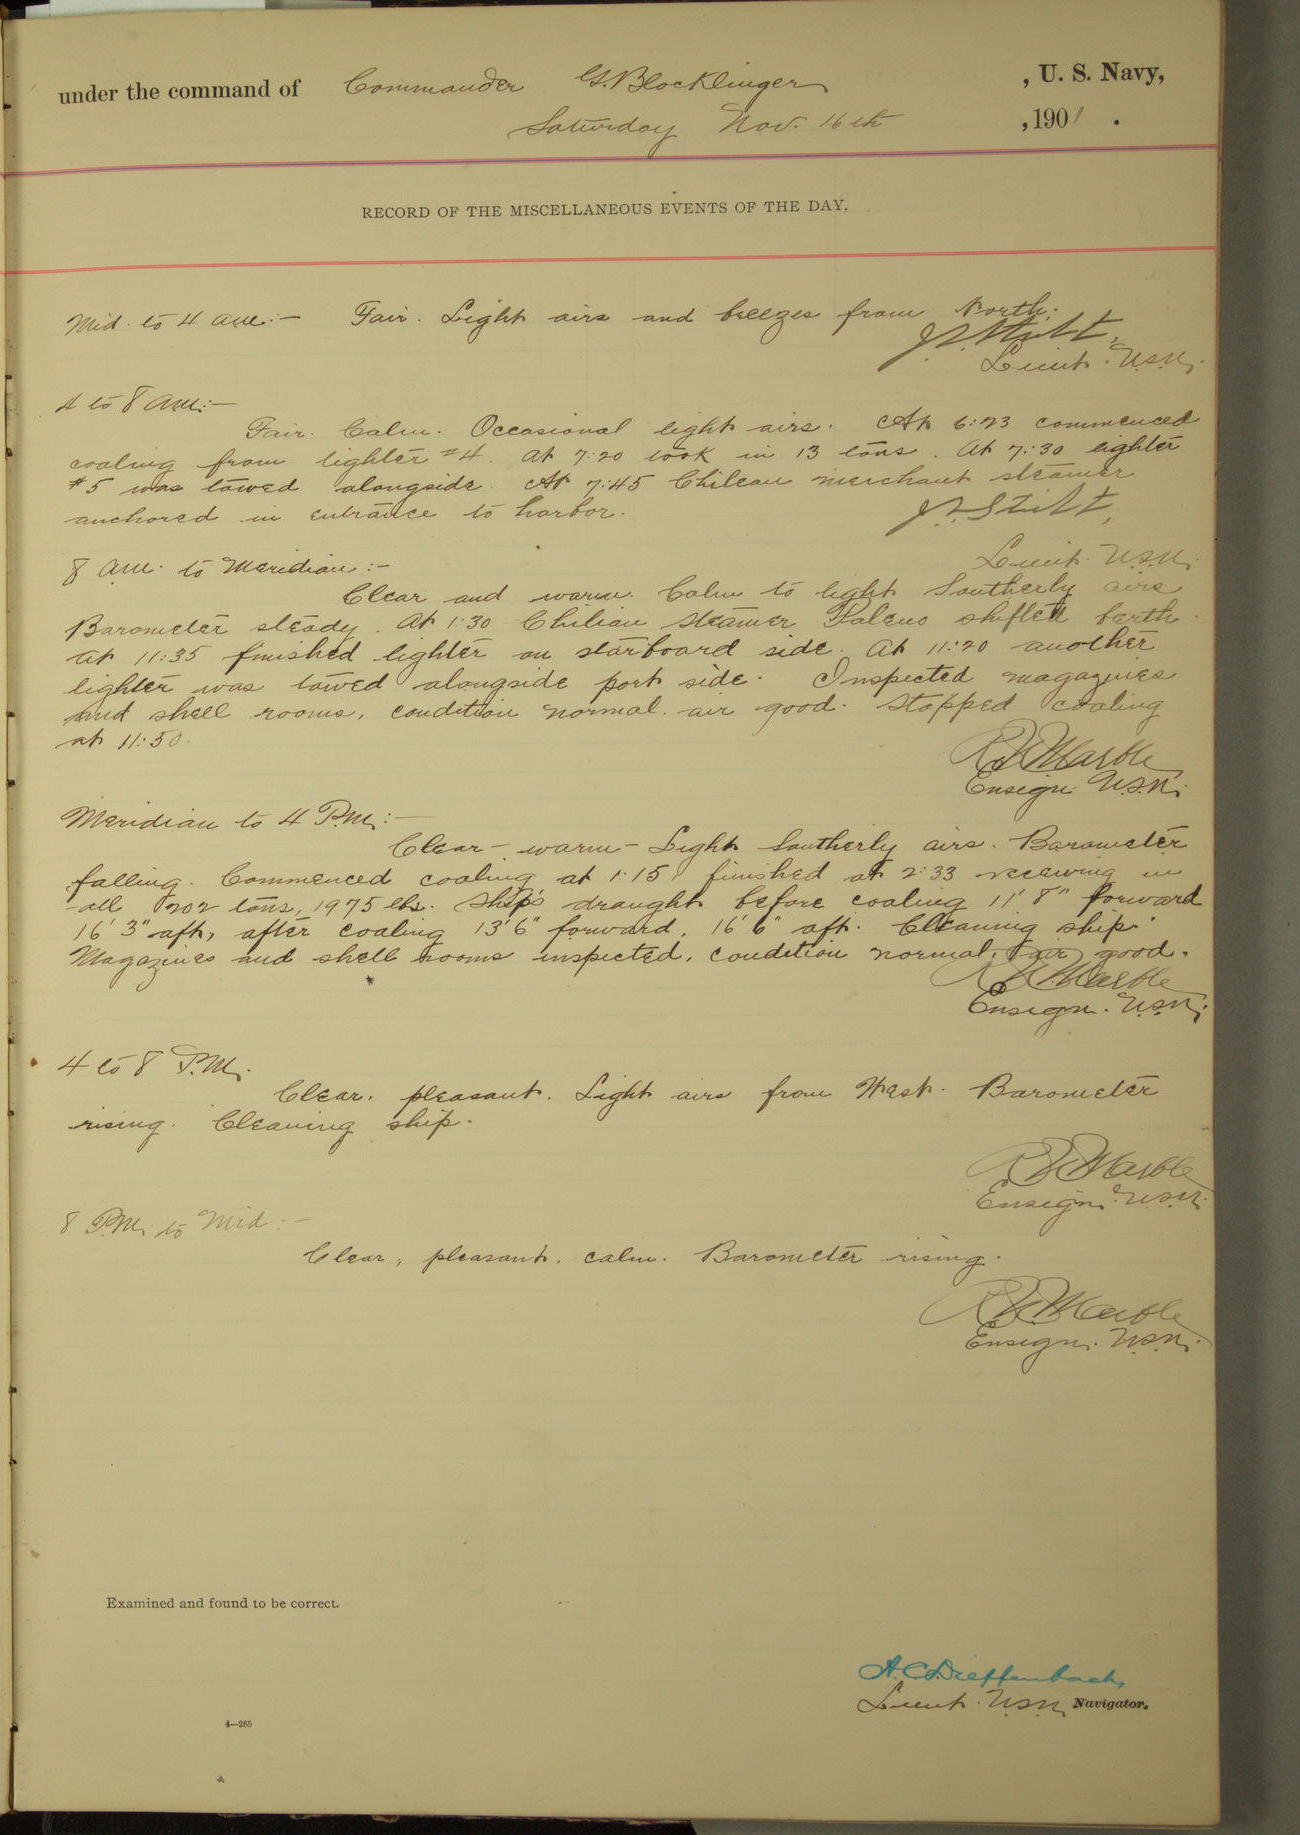 under the command of Commander G. Blocklinger , U. S. Navy,
Saturday Nov. 16th , 1901 .
RECORD OF THE MISCELLANEOUS EVENTS OF THE DAY.
Mid. to 4 a.m.:— Fair. Light airs and breezes from North.
Lieut. U.S.N.
4 to 8 a.m.:—
Fair. Calm. Occasional light airs. At 6:23 commenced
coaling from lighter #4. At 7:20 took in 13 tons. At 7:30 lighter
#5 was towed alongside. At 7:45 Chilean merchant steamer
anchored in entrance to harbor.
Lieut. U.S.N.
8 a.m. to Meridian:—
Clear and warm. Calm to light Southerly airs
Barometer steady. At 1:30 Chilian steamer shifted berth.
At 11:35 finished lighter on starboard side. At 11:20 another
lighter was towed alongside port side. Inspected magazines
and shell rooms, condition normal. air good. Stopped coaling
at 11:50.
Marble
Ensign U.S.N.
Meridian to 4 P.M.:—
Clear— warm— Light Southerly airs. Barometer
falling. Commenced coaling at 1:15, finished at 2:33 receiving in
all 202 tons, 1975 lbs. Ship's draught before coaling 11' 8" forward
16' 3" aft, after coaling 13' 6" forward, 16' 6" aft. Cleaning ship.
Magazines and shell rooms inspected, condition normal, air good.
Marble
Ensign. U.S.N.
4 to 8 P.M.
Clear, pleasant. Light airs from West. Barometer
rising. Cleaning ship.
Marble
Ensign. U.S.N.
8 P.M. to Mid:—
Clear, pleasant, calm. Barometer rising.
Marble
Ensign. U.S.N.
Examined and found to be correct.
A. C. Dieffenbach,
Lieut. U.S.N., Navigator.
4—265